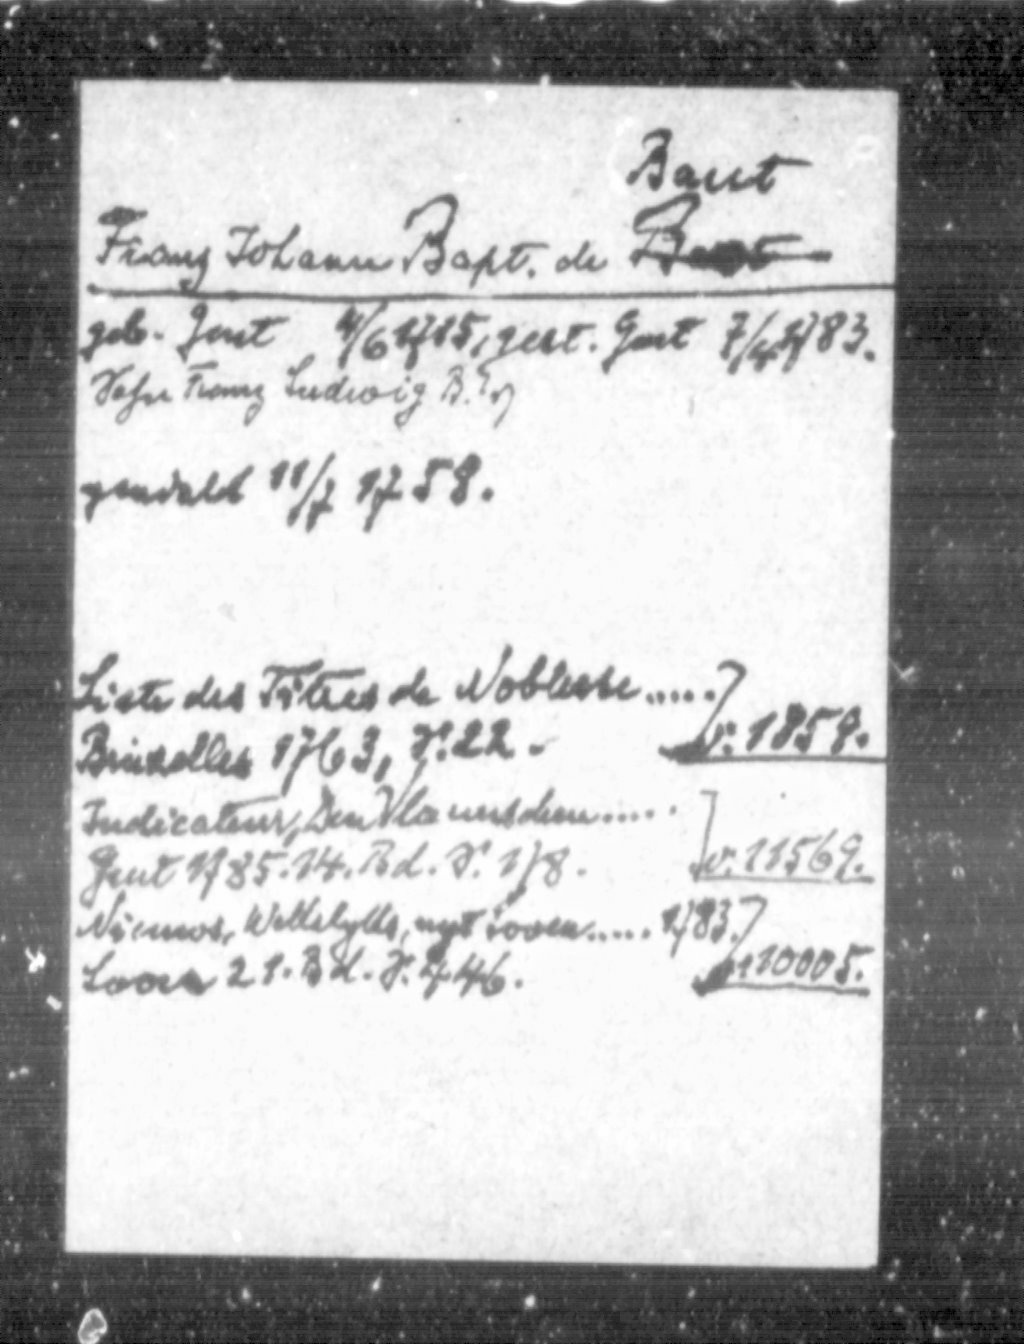 Baut
Franz Johann Bapt. de
geb. Gent 4/6 1715, gest. Gent 7/4 1783.
Sohn Franz Ludwig B.'s
geadelt 11/7 1758.
Liste des Titres de Noblesse.....
Bruxelles 1763, S. 22. v. 1859.
Indicateur, Den Vlaemschen.....
Gent 1785. 14. Bd. S. 178. v. 11569.
Wettelyke, nyt Loven..... 1783.
Loven 21. Bd. S. 446. v. 10005.